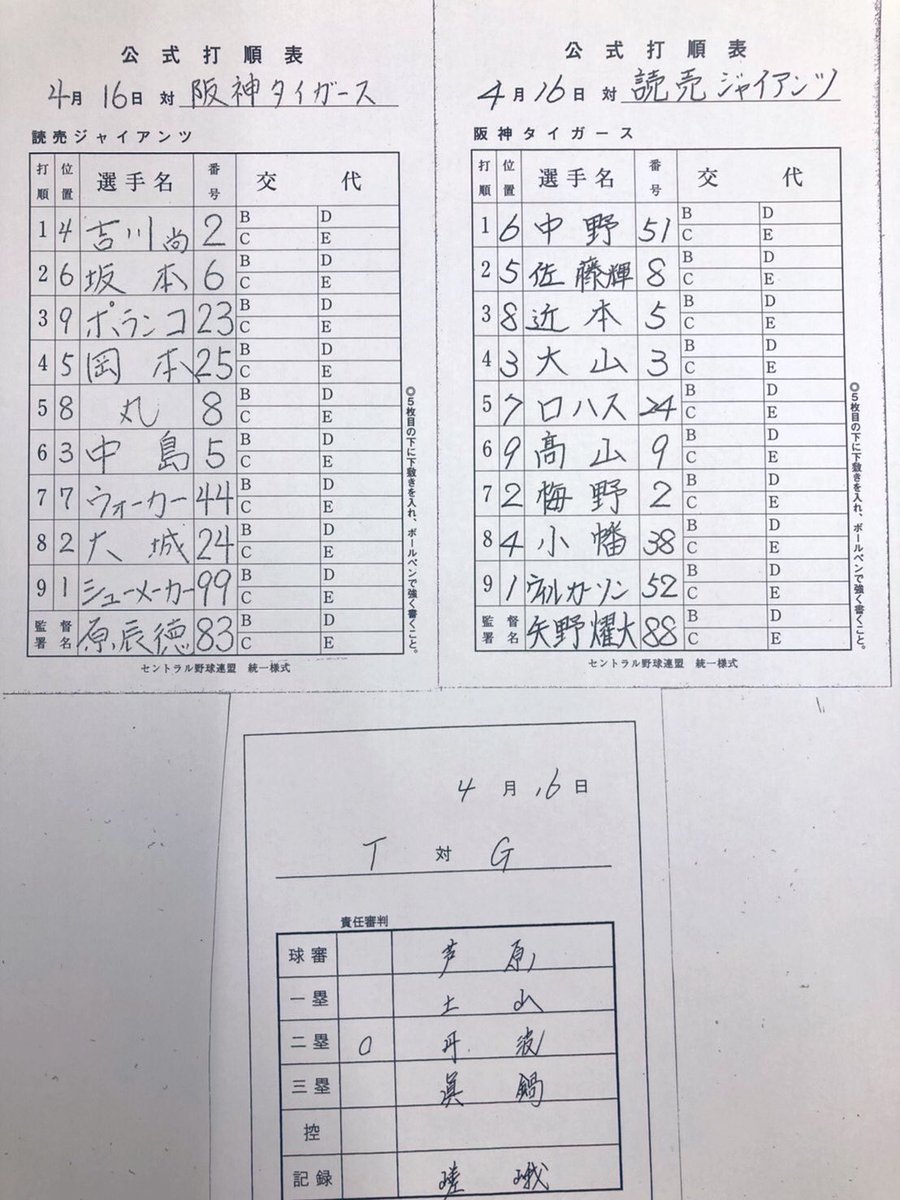 公式打順表
4月16日 対 阪神タイガース
読売ジャイアンツ
打順 位置 選手名 番号 交代
1 4 吉川尚 2 B D C E
2 6 坂本 6 B D C E
3 9 ポランコ 23 B D C E
4 5 岡本 25 B D C E
5 8 丸 8 B D C E
6 3 中島 5 B D C E
7 7 ウォーカー 44 B D C E
8 2 大城 24 B D C E
9 1 シューメーカー 99 B D C E
監督署名 原辰徳 83 B D C E
セントラル野球連盟 統一様式
◎5枚目の下に下敷きを入れ、ボールペンで強く書くこと。
公式打順表
4月16日 対 読売ジャイアンツ
阪神タイガース
打順 位置 選手名 番号 交代
1 6 中野 51 B D C E
2 5 佐藤輝 8 B D C E
3 8 近本 5 B D C E
4 3 大山 3 B D C E
5 7 ロハス 24 B D C E
6 9 高山 9 B D C E
7 2 梅野 2 B D C E
8 4 小幡 38 B D C E
9 1 ウィルカーソン 52 B D C E
監督署名 矢野燿大 88 B D C E
セントラル野球連盟 統一様式
◎5枚目の下に下敷きを入れ、ボールペンで強く書くこと。
4月16日
T 対 G
責任審判
球審 芦原
一塁 土山
二塁 O 丹波
三塁 眞鍋
控
記録 嵯峨